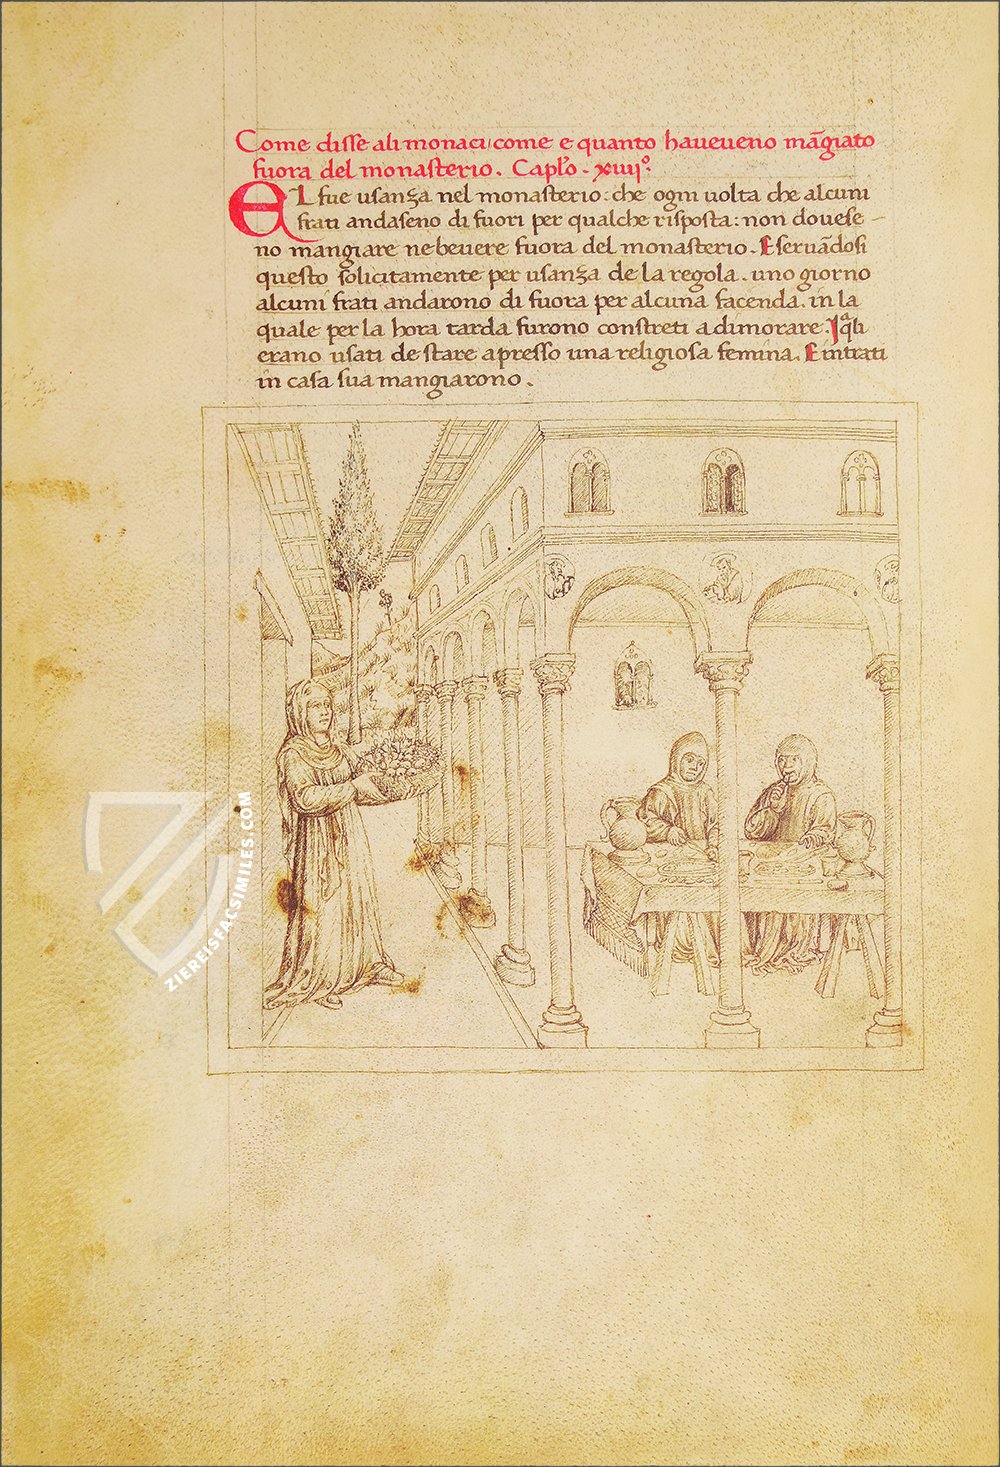 Come disse ali monaci come e quanto haveveno mãgiato
fuora del monasterio. Caplo. xiiijº.
EL fue usanza nel monasterio: che ogni uolta che alcuni
frati andaseno di fuori per qualche risposta: non douese-
no mangiare ne beuere fuora del monasterio. Eseruãdosi
questo solicitamente per usanza de la regola. uno giorno
alcuni frati andarono di fuora per alcuna facenda. in la
quale per la hora tarda furono constreti a dimorare. I q̃li
erano usati de stare apresso una religiosa femina. E intrati
in casa sua mangiarono.
ZIEREISFACSIMILES.COM